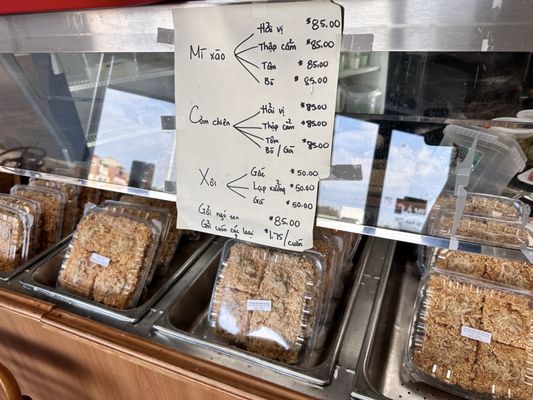 Mì xào
Hải vị $85.00
Thập cẩm $85.00
Tôm $85.00
Bò $85.00
Cơm chiên
Hải vị $85.00
Thập cẩm $85.00
Tôm
Bò / Gà $85.00
Xôi
Gấc $50.00
Lạp xưởng $50.00
Gà $60.00
Gỏi ngó sen $85.00
Gỏi cuốn các loại $1.75/cuốn